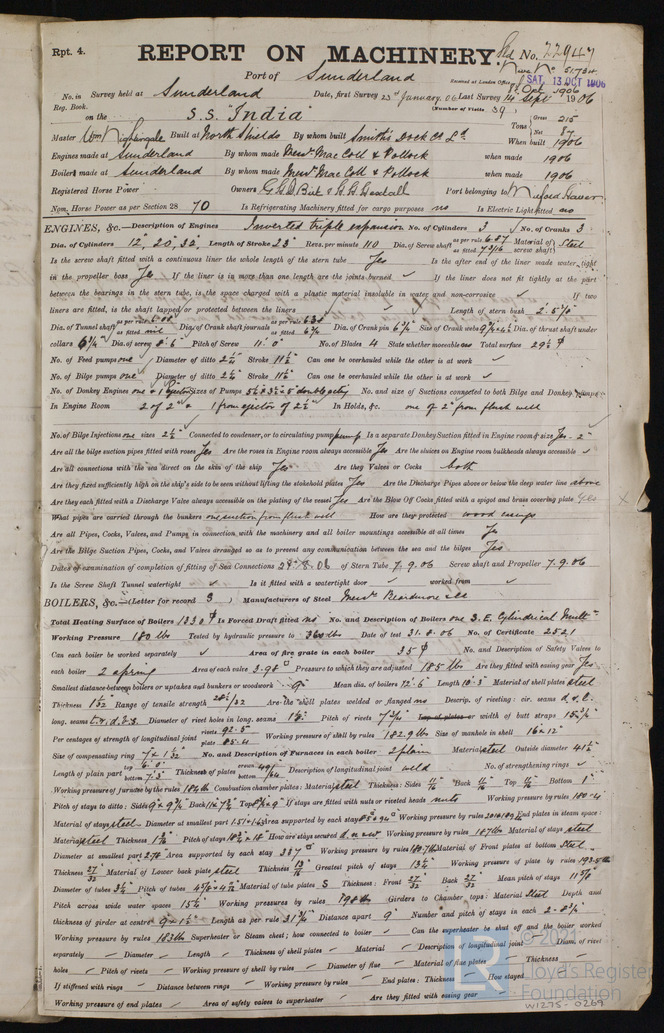 Rpt. 4.
REPORT ON MACHINERY.
No. 22947
Port of Sunderland
Received at London Office SAT. 13 OCT 1906
No. in Survey held at Sunderland Date, first Survey 23rd January 06 Last Survey 14 Sept 1906
Reg. Book. (Number of Visits 39)
on the S.S. "India" Tons Gross 215 Net 87
Master Built at North Shields By whom built Smith's Dock Co Ld When built 1906
Engines made at Sunderland By whom made Messrs Mac Coll & Pollock when made 1906
Boilers made at Sunderland By whom made Messrs Mac Coll & Pollock when made 1906
Registered Horse Power Owners Port belonging to Milford Haven
Nom. Horse Power as per Section 28 70 Is Refrigerating Machinery fitted for cargo purposes no Is Electric Light fitted no
ENGINES, &c.—Description of Engines Inverted triple expansion No. of Cylinders 3 No. of Cranks 3
Dia. of Cylinders 12, 20, 32" Length of Stroke 23" Revs. per minute 110 Dia. of Screw shaft as per rule 6.87 as fitted 7 3/16 Material of screw shaft Steel
Is the screw shaft fitted with a continuous liner the whole length of the stern tube Yes Is the after end of the liner made water tight
in the propeller boss Yes If the liner is in more than one length are the joints burned ✓ If the liner does not fit tightly at the part
between the bearings in the stern tube, is the space charged with a plastic material insoluble in water and non-corrosive ✓ If two
liners are fitted, is the shaft lapped or protected between the liners ✓ Length of stern bush 2'. 5"
Dia. of Tunnel shaft as per rule as fitted nil Dia. of Crank shaft journals as per rule as fitted 6 3/4 Dia. of Crank pin 6 3/4" Size of Crank webs Dia. of thrust shaft under
collars 6 3/4" Dia. of screw 8.6 Pitch of Screw 11.0 No. of Blades 4 State whether moveable no Total surface 29 1/2
No. of Feed pumps one Diameter of ditto 2 1/4" Stroke 11 1/2" Can one be overhauled while the other is at work ✓
No. of Bilge pumps one Diameter of ditto 2 1/4" Stroke 11 1/2" Can one be overhauled while the other is at work ✓
No. of Donkey Engines one & 1 Ejector Sizes of Pumps double acting No. and size of Suctions connected to both Bilge and Donkey Pumps
In Engine Room 2 of 2" & 1 from ejector of 2 1/2" In Holds, &c. one of 2" from flush well
No. of Bilge Injections one sizes 2 1/2" Connected to condenser, or to circulating pump pump Is a separate Donkey Suction fitted in Engine room & size Yes - 2"
Are all the bilge suction pipes fitted with roses Yes Are the roses in Engine room always accessible Yes Are the sluices on Engine room bulkheads always accessible ✓
Are all connections with the sea direct on the skin of the ship Yes Are they Valves or Cocks both
Are they fixed sufficiently high on the ship's side to be seen without lifting the stokehold plates Yes Are the Discharge Pipes above or below the deep water line above
Are they each fitted with a Discharge Valve always accessible on the plating of the vessel Yes Are the Blow Off Cocks fitted with a spigot and brass covering plate Yes
What pipes are carried through the bunkers one suction from flush well How are they protected wood casings
Are all Pipes, Cocks, Valves, and Pumps in connection with the machinery and all boiler mountings accessible at all times Yes
Are the Bilge Suction Pipes, Cocks, and Valves arranged so as to prevent any communication between the sea and the bilges Yes
Dates of examination of completion of fitting of Sea Connections 28.8.06 of Stern Tube 7.9.06 Screw shaft and Propeller 7.9.06
Is the Screw Shaft Tunnel watertight ✓ Is it fitted with a watertight door ✓ worked from ✓
BOILERS, &c.—(Letter for record S) Manufacturers of Steel Messrs Beardmore & Co
Total Heating Surface of Boilers 1330 Is Forced Draft fitted no No. and Description of Boilers one S.E. Cylindrical Mult
Working Pressure 180 lbs Tested by hydraulic pressure to 360 lbs Date of test 31.8.06 No. of Certificate 2521
Can each boiler be worked separately ✓ Area of fire grate in each boiler 35 No. and Description of Safety Valves to
each boiler 2 spring Area of each valve 3.98 Pressure to which they are adjusted 185 lbs Are they fitted with easing gear Yes
Smallest distance between boilers or uptakes and bunkers or woodwork 9" Mean dia. of boilers 12.6 Length 10.3 Material of shell plates steel
Thickness 1 1/32 Range of tensile strength 28 1/2/32 Are the shell plates welded or flanged no Descrip. of riveting: cir. seams d.r.l.
long. seams Diameter of rivet holes in long. seams Pitch of rivets Lap of plates or width of butt straps
Per centages of strength of longitudinal joint rivets 92.5 plate 85.4 Working pressure of shell by rules 182.9 lbs Size of manhole in shell 16 x 12"
Size of compensating ring 7 x 1 1/32" No. and Description of Furnaces in each boiler 2 plain Material steel Outside diameter 41 1/2"
Length of plain part top 6.0 bottom 7.3 Thickness of plates crown bottom Description of longitudinal joint weld No. of strengthening rings ✓
Working pressure of furnace by the rules 184 lbs Combustion chamber plates: Material steel Thickness: Sides 11/16 Back 11/16 Top 11/16 Bottom 1"
Pitch of stays to ditto: Sides Back Top If stays are fitted with nuts or riveted heads nuts Working pressure by rules
Material of stays steel Diameter at smallest part Area supported by each stay Working pressure by rules End plates in steam space:
Material steel Thickness Pitch of stays How are stays secured d.n & w Working pressure by rules 187 lbs Material of stays steel
Diameter at smallest part Area supported by each stay 387 Working pressure by rules Material of Front plates at bottom Steel
Thickness 27/32 Material of Lower back plate steel Thickness Greatest pitch of stays 13 1/2" Working pressure of plate by rules
Diameter of tubes 3 1/2" Pitch of tubes Material of tube plates S Thickness: Front 27/32 Back 27/32 Mean pitch of stays
Pitch across wide water spaces 15 1/2" Working pressures by rules Girders to Chamber tops: Material Steel Depth and
thickness of girder at centre 9 x 1 1/2" Length as per rule 31 3/4" Distance apart 9" Number and pitch of stays in each
Working pressure by rules 183 lbs Superheater or Steam chest; how connected to boiler ✓ Can the superheater be shut off and the boiler worked
separately — Diameter — Length — Thickness of shell plates — Material — Description of longitudinal joint — Diam. of rivet
holes — Pitch of rivets — Working pressure of shell by rules — Diameter of flue — Material of flue plates — Thickness —
If stiffened with rings — Distance between rings — Working pressure by rules — End plates: Thickness — How stayed
Working pressure of end plates — Area of safety valves to superheater — Are they fitted with easing gear —
© 2021
LR
Lloyd's Register
Foundation
W1275-0269